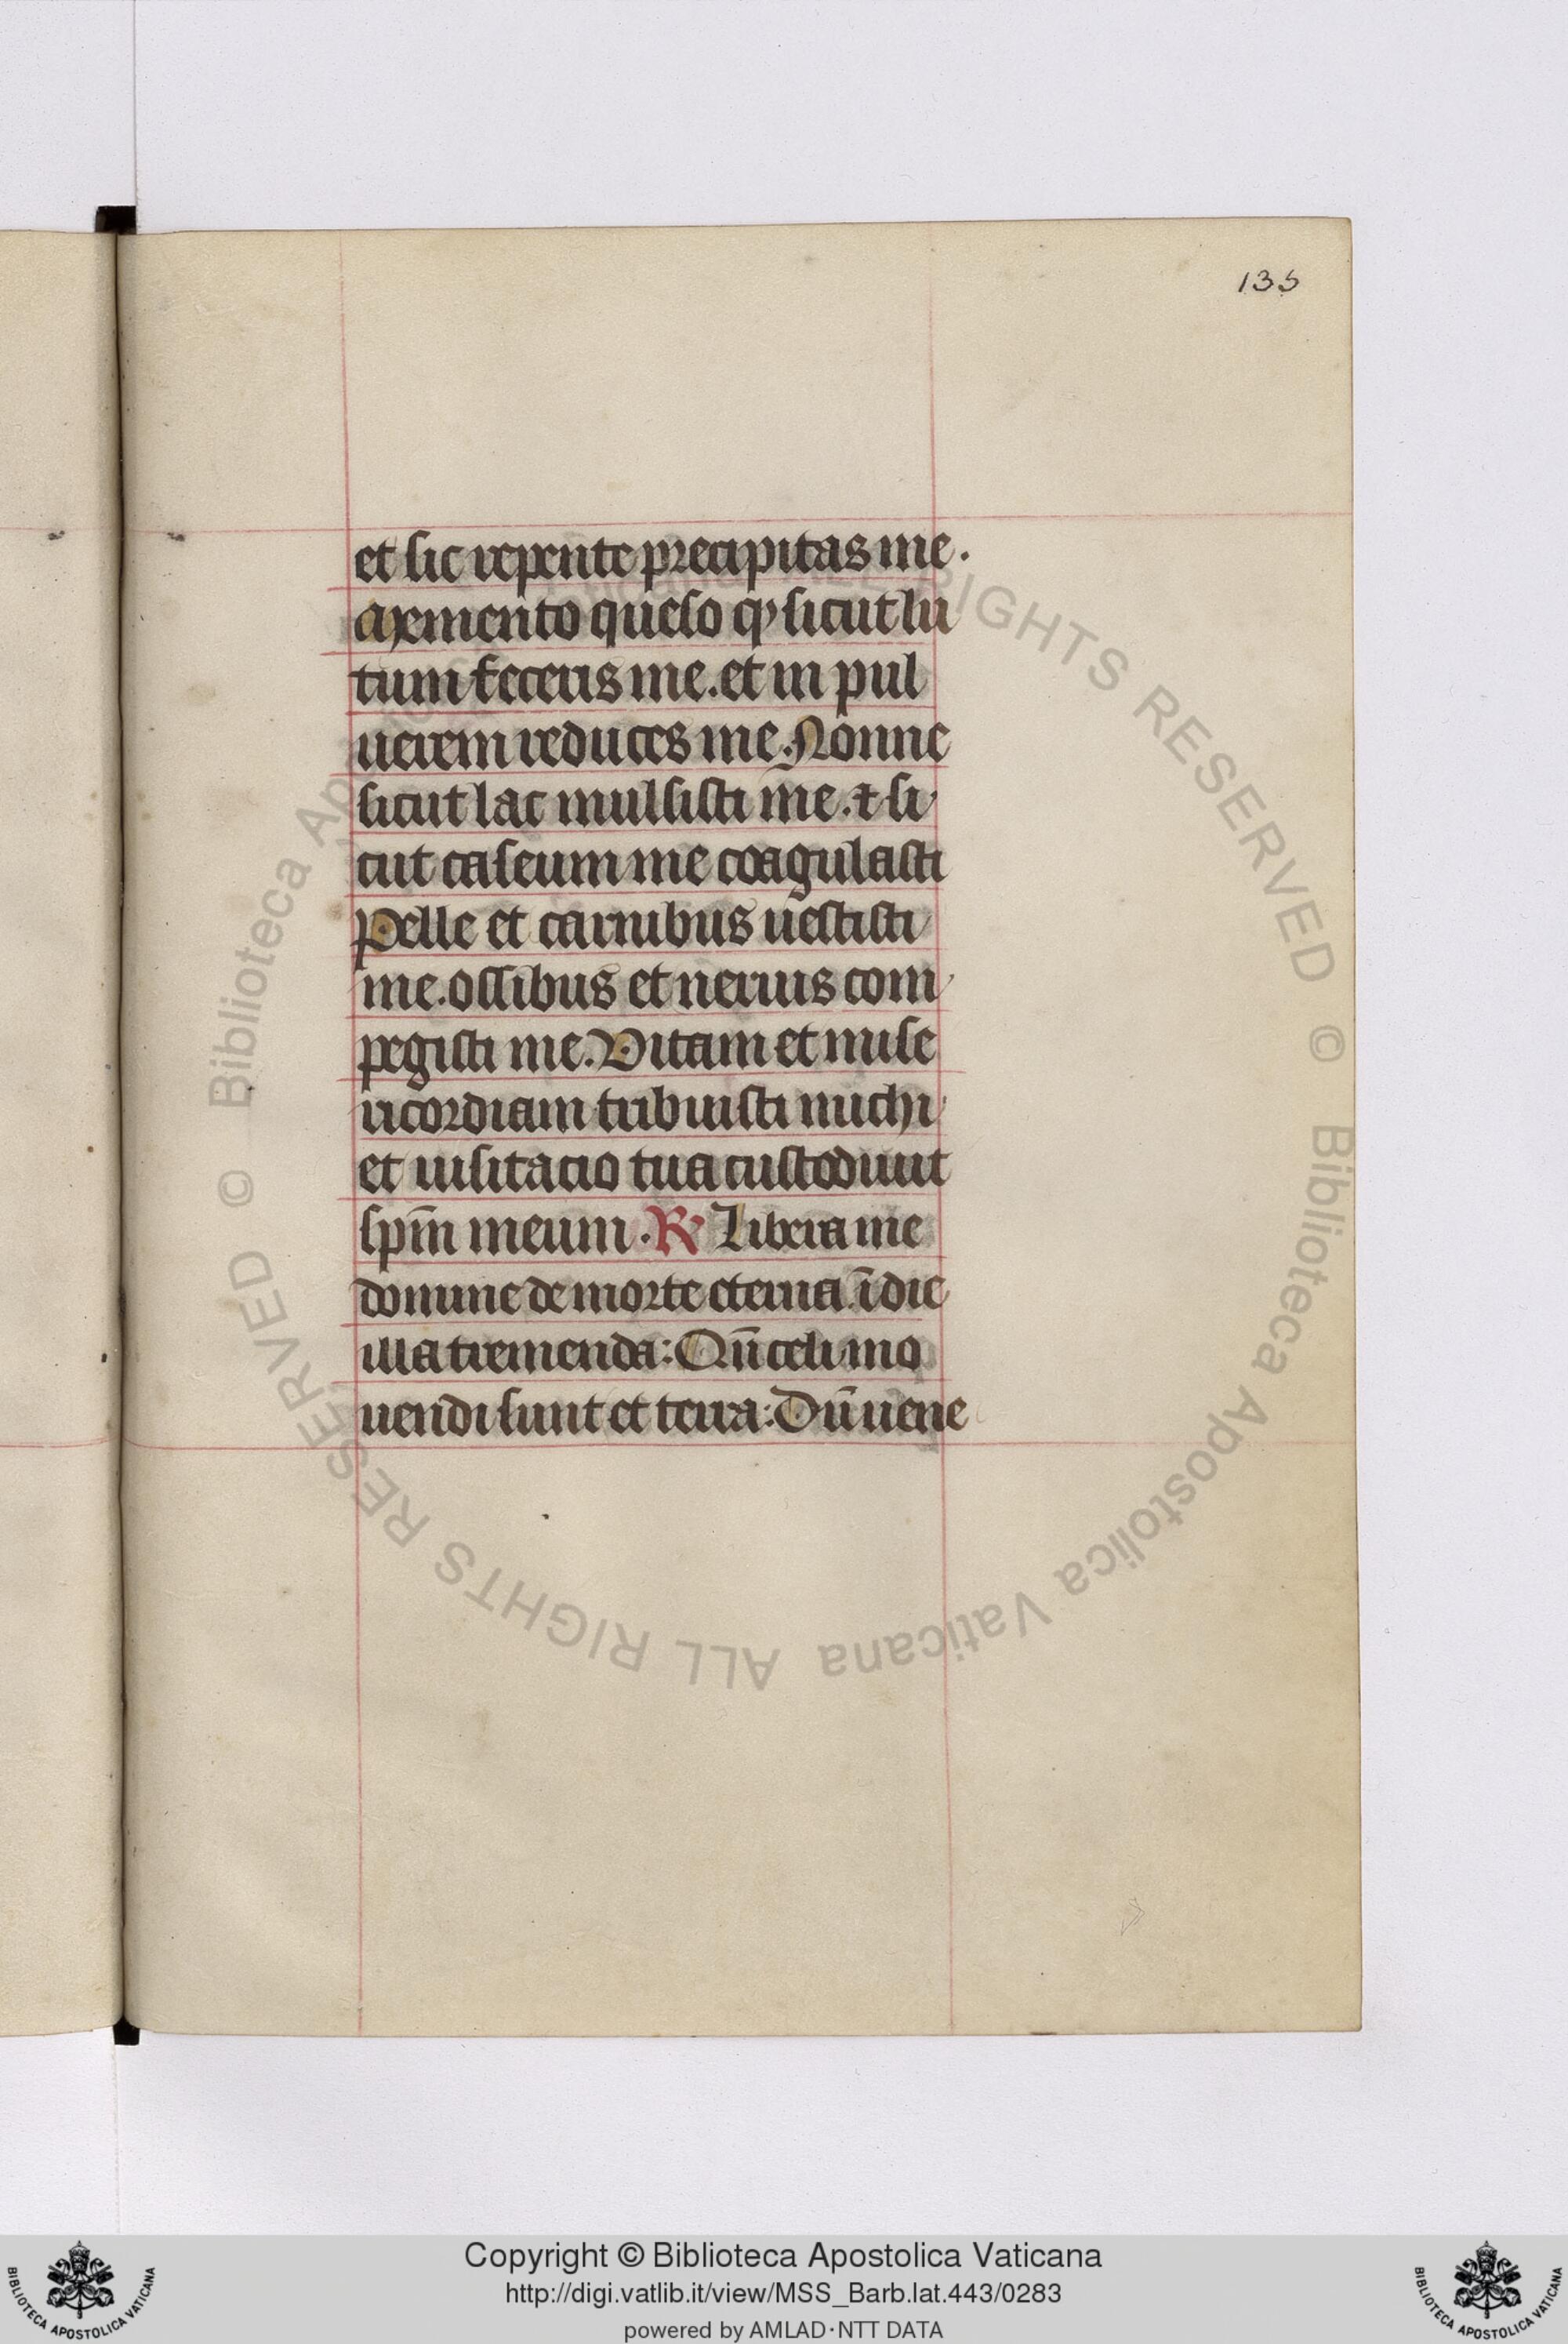 135
et sic repente precipitas me.
Memento queso qꝫ sicut lu
tum feceris me. et in pul
uerem reduces me. Nonne
sicut lac mulsisti me. ⁊ si
cut caseum me coagulasti
Pelle et carnibus uestisti
me. ossibus et neruis com
pegisti me. Vitam et mise
ricordiam tribuisti michi
et uisitacio tua custodiuit
sp̅m meum. R Libera me
domine de morte eterna. ī die
illa tremenda: Qn̅ celi mo
uendi sunt et terra: Du̅ uene
© Biblioteca Apostolica Vaticana ALL RIGHTS RESERVED © Biblioteca Apostolica Vaticana ALL RIGHTS RESERVED
Copyright © Biblioteca Apostolica Vaticana
http://digi.vatlib.it/view/MSS_Barb.lat.443/0283
powered by AMLAD·NTT DATA
BIBLIOTECA APOSTOLICA VATICANA
BIBLIOTECA APOSTOLICA VATICANA